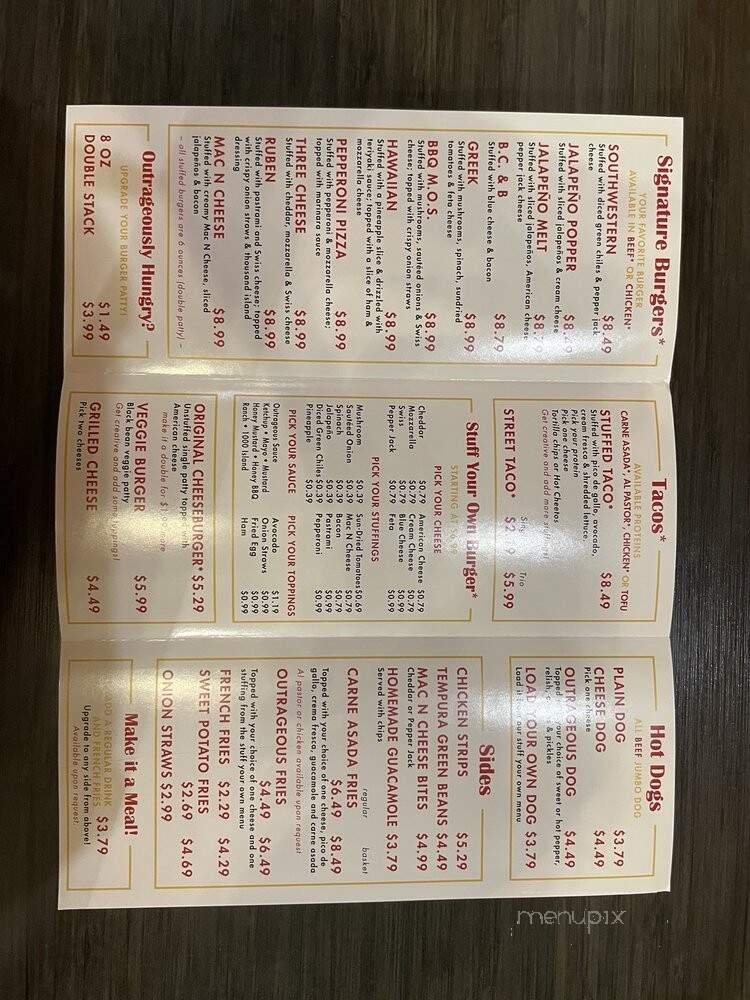 Signature Burgers*
YOUR FAVORITE BURGER
AVAILABLE IN BEEF* OR CHICKEN*
SOUTHWESTERN $8.49
Stuffed with diced green chiles & pepper jack
cheese
JALAPEÑO POPPER
Stuffed with sliced jalapeños & cream cheese
JALAPEÑO MELT
Stuffed with sliced jalapeños, American cheese
pepper jack cheese
B.C. & B $8.79
Stuffed with blue cheese & bacon
GREEK $8.99
Stuffed with mushrooms, spinach, sundried
tomatoes & feta cheese
BBQ M.O.S. $8.99
Stuffed with mushrooms, sautéed onions & Swiss
cheese; topped with crispy onion straws
HAWAIIAN $8.99
Stuffed with a pineapple slice & drizzled with
teriyaki sauce; topped with a slice of ham &
mozzarella cheese
PEPPERONI PIZZA $8.99
Stuffed with pepperoni & mozzarella cheese;
topped with marinara sauce
THREE CHEESE $8.99
Stuffed with cheddar, mozzarella & Swiss cheese
RUBEN $8.99
Stuffed with pastrami and Swiss cheese; topped
with crispy onion straws & thousand island
dressing
MAC N CHEESE $8.99
Stuffed with creamy Mac N Cheese, sliced
jalapeños & bacon
~ all stuffed burgers are 6 ounces (double patty) ~
Outrageously Hungry?
UPGRADE YOUR BURGER PATTY!
8 OZ $1.49
DOUBLE STACK $3.99
Tacos*
AVAILABLE PROTEINS
CARNE ASADA*, AL PASTOR*, CHICKEN* OR TOFU
STUFFED TACO* $8.49
Stuffed with pico de gallo, avocado,
crema fresca & shredded lettuce.
Pick your protein
Pick one cheese
Tortilla chips or Hot Cheetos
Get creative and add more stuffings!
Trio
STREET TACO* $5.99
Stuff Your Own Burger*
STARTING AT
PICK YOUR CHEESE
Cheddar $0.79 American Cheese $0.79
Mozzarella $0.79 Cream Cheese $0.79
Swiss $0.79 Blue Cheese $0.99
Pepper Jack $0.79 Feta $0.99
PICK YOUR STUFFINGS
Mushroom $0.39 Sun-Dried Tomatoes $0.69
Sautéed Onion $0.39 Mac N Cheese $0.79
Spinach $0.39 Bacon $0.79
Jalapeño $0.39 Pastrami $0.99
Diced Green Chiles $0.39 Pepperoni $0.99
Pineapple $0.39
PICK YOUR SAUCE
Outrageous Sauce
Ketchup • Mayo • Mustard
Honey Mustard • Honey BBQ
Ranch • 1000 Island
PICK YOUR TOPPINGS
Avocado $1.19
Onion Straws $0.99
Fried Egg $0.99
Ham $0.99
ORIGINAL CHEESEBURGER* $5.29
Unstuffed single patty topped with
American cheese
make it a double for more
VEGGIE BURGER $5.99
Black bean veggie patty
Get creative and add some toppings!
GRILLED CHEESE $4.49
Pick two cheeses
Hot Dogs
ALL BEEF JUMBO DOG
PLAIN DOG $3.79
CHEESE DOG $4.49
Pick one cheese
OUTRAGEOUS DOG $4.49
Topped with your choice of sweet or hot pepper,
relish, & pickles
LOAD YOUR OWN DOG $3.79
Load it our stuff your own menu
Sides
CHICKEN STRIPS $5.29
TEMPURA GREEN BEANS $4.49
MAC N CHEESE BITES $4.99
Cheddar or Pepper Jack
HOMEMADE GUACAMOLE $3.79
Served with chips
regular basket
CARNE ASADA FRIES $6.49 $8.49
Topped with your choice of one cheese, pico de
gallo, crema fresca, guacamole and carne asada
Al pastor or chicken available upon request
OUTRAGEOUS FRIES $4.49 $6.49
Topped with your choice of one cheese and one
stuffing from the stuff your own menu
FRENCH FRIES $2.29 $4.29
SWEET POTATO FRIES $2.69 $4.69
ONION STRAWS $2.99
Make it a Meal!
ADD A REGULAR DRINK
AND FRENCH FRIES $3.79
Upgrade to any side from above!
Available upon request.
menupix